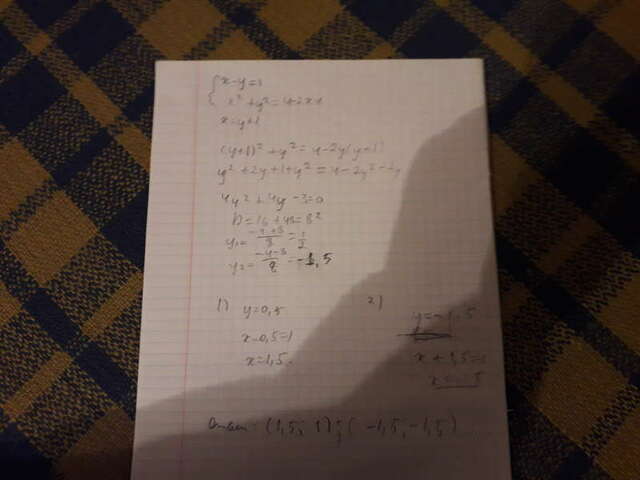 x-y=1
x² + y² = 4-2xy
x=y+1
(y+1)² + y² = 4-2y(y+1)
y² + 2y+1+y² = 4-2y²-2y
4y² + 4y -3=0
D=16+48=8²
y₁= \frac{-4+8}{8} = \frac{1}{2}
y₂= \frac{-4-8}{8} = -1,5
1) y=0,5 2) y=-1,5
x-0,5=1 x+1,5=1
x=1,5.
Ответ: (1,5; 1);( -1,5; -1,5)